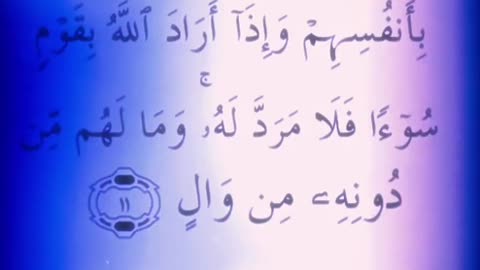 بِأَنفُسِهِمْ وَإِذَآ أَرَادَ ٱللَّهُ بِقَوْمٍ
سُوٓءًا فَلَا مَرَدَّ لَهُۥ ۚ وَمَا لَهُم مِّن
دُونِهِۦ مِن وَالٍ ١١